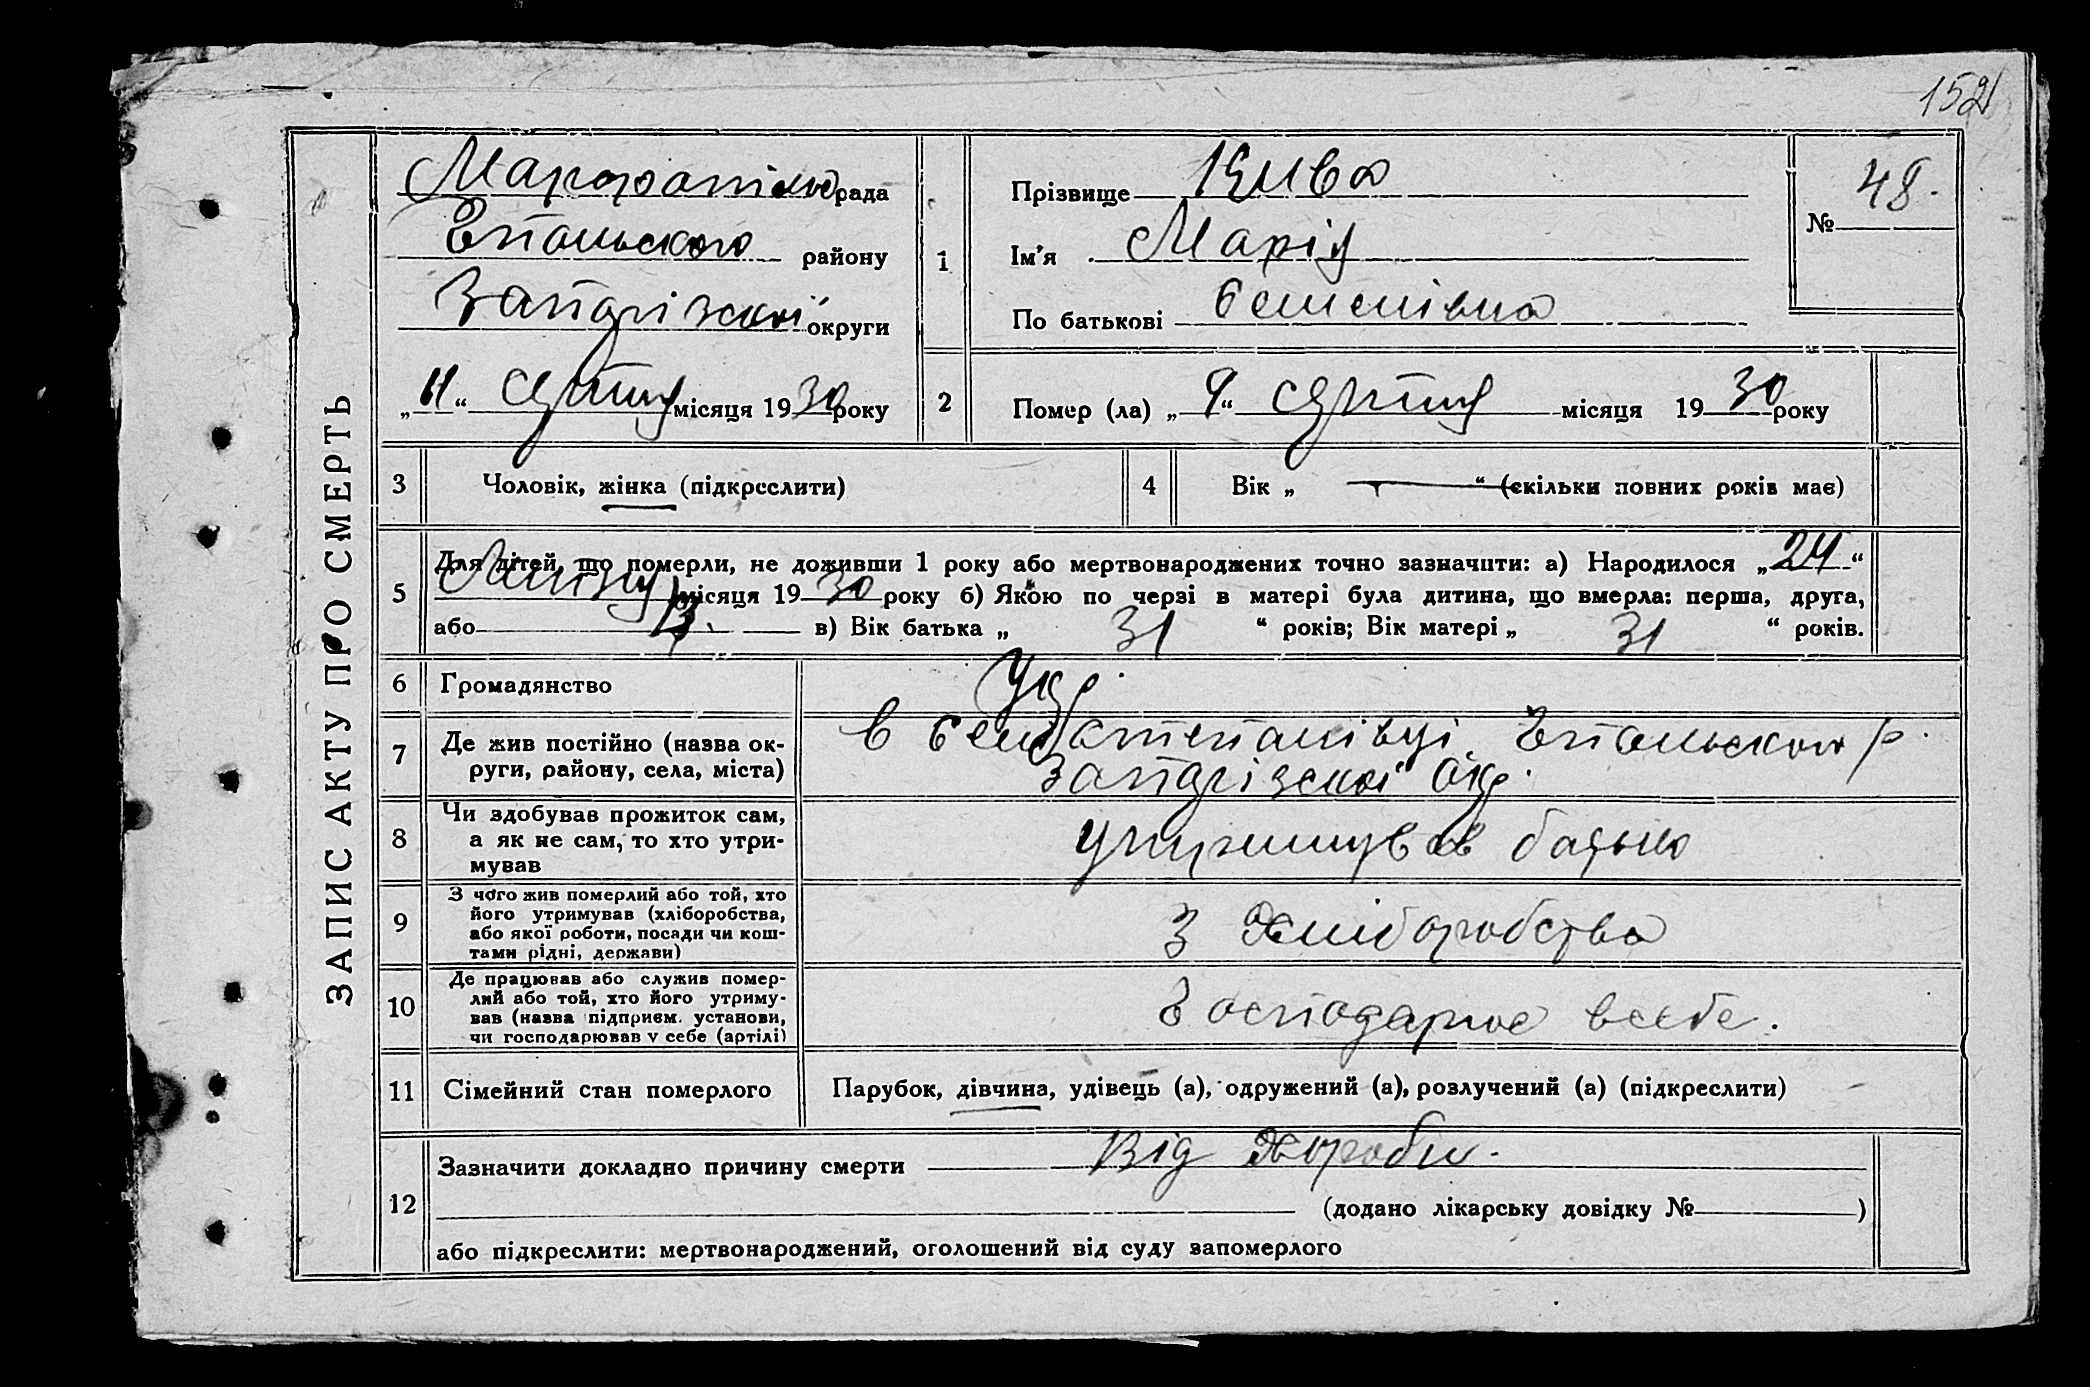 152
ЗАПИС АКТУ ПРО СМЕРТЬ
рада
району
Запорізької округи
„11“ серпня місяця 1930 року
1
Прізвище
Ім'я Марія
По батькові Семенівна
№ 48.
2
Помер (ла) „9“ серпня місяця 1930 року
3
Чоловік, жінка (підкреслити)
4
Вік „ — “ (скільки повних років має)
5
Для дітей, що померли, не доживши 1 року або мертвонароджених точно зазначити: а) Народилося „24“
Липня місяця 1930 року б) Якою по черзі в матері була дитина, що вмерла: перша, друга,
або в) Вік батька „ 31 “ років; Вік матері „ 31 “ років.
6
Громадянство
Укр.
7
Де жив постійно (назва ок-
руги, району, села, міста)
в р.
Запорізької окр.
8
Чи здобував прожиток сам,
а як не сам, то хто утри-
мував
утримував батько
9
З чого жив померлий або той, хто
його утримував (хліборобства,
або якої роботи, посади чи кош-
тами рідні, держави)
З хліборобства
10
Де працював або служив помер-
лий або той, хто його утриму-
вав (назва підприєм. установи,
чи господарював у себе (артілі)
Господарює всебе.
11
Сімейний стан померлого
Парубок, дівчина, удівець (а), одружений (а), розлучений (а) (підкреслити)
12
Зазначити докладно причину смерти Від хороби.
(додано лікарську довідку № )
або підкреслити: мертвонароджений, оголошений від суду запомерлого